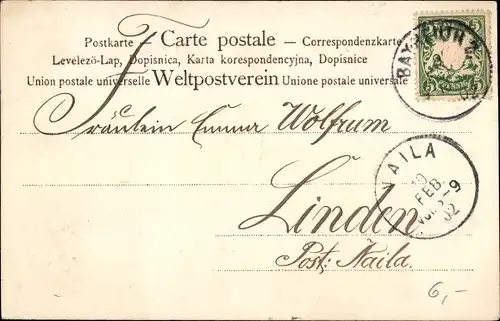 Postkarte – Carte postale – Correspondenzkarte
Levelezö-Lap, Dopisnica, Karta korespondencyjna, Dopisnice
Union postale universelle Weltpostverein Unione postale universale
BAYREUTH 2
5 PFENNIG 5
Fräulein Emma Wolfrum
NAILA
10
FEB.
8-9
02
Linden
Post: Naila.
6,-